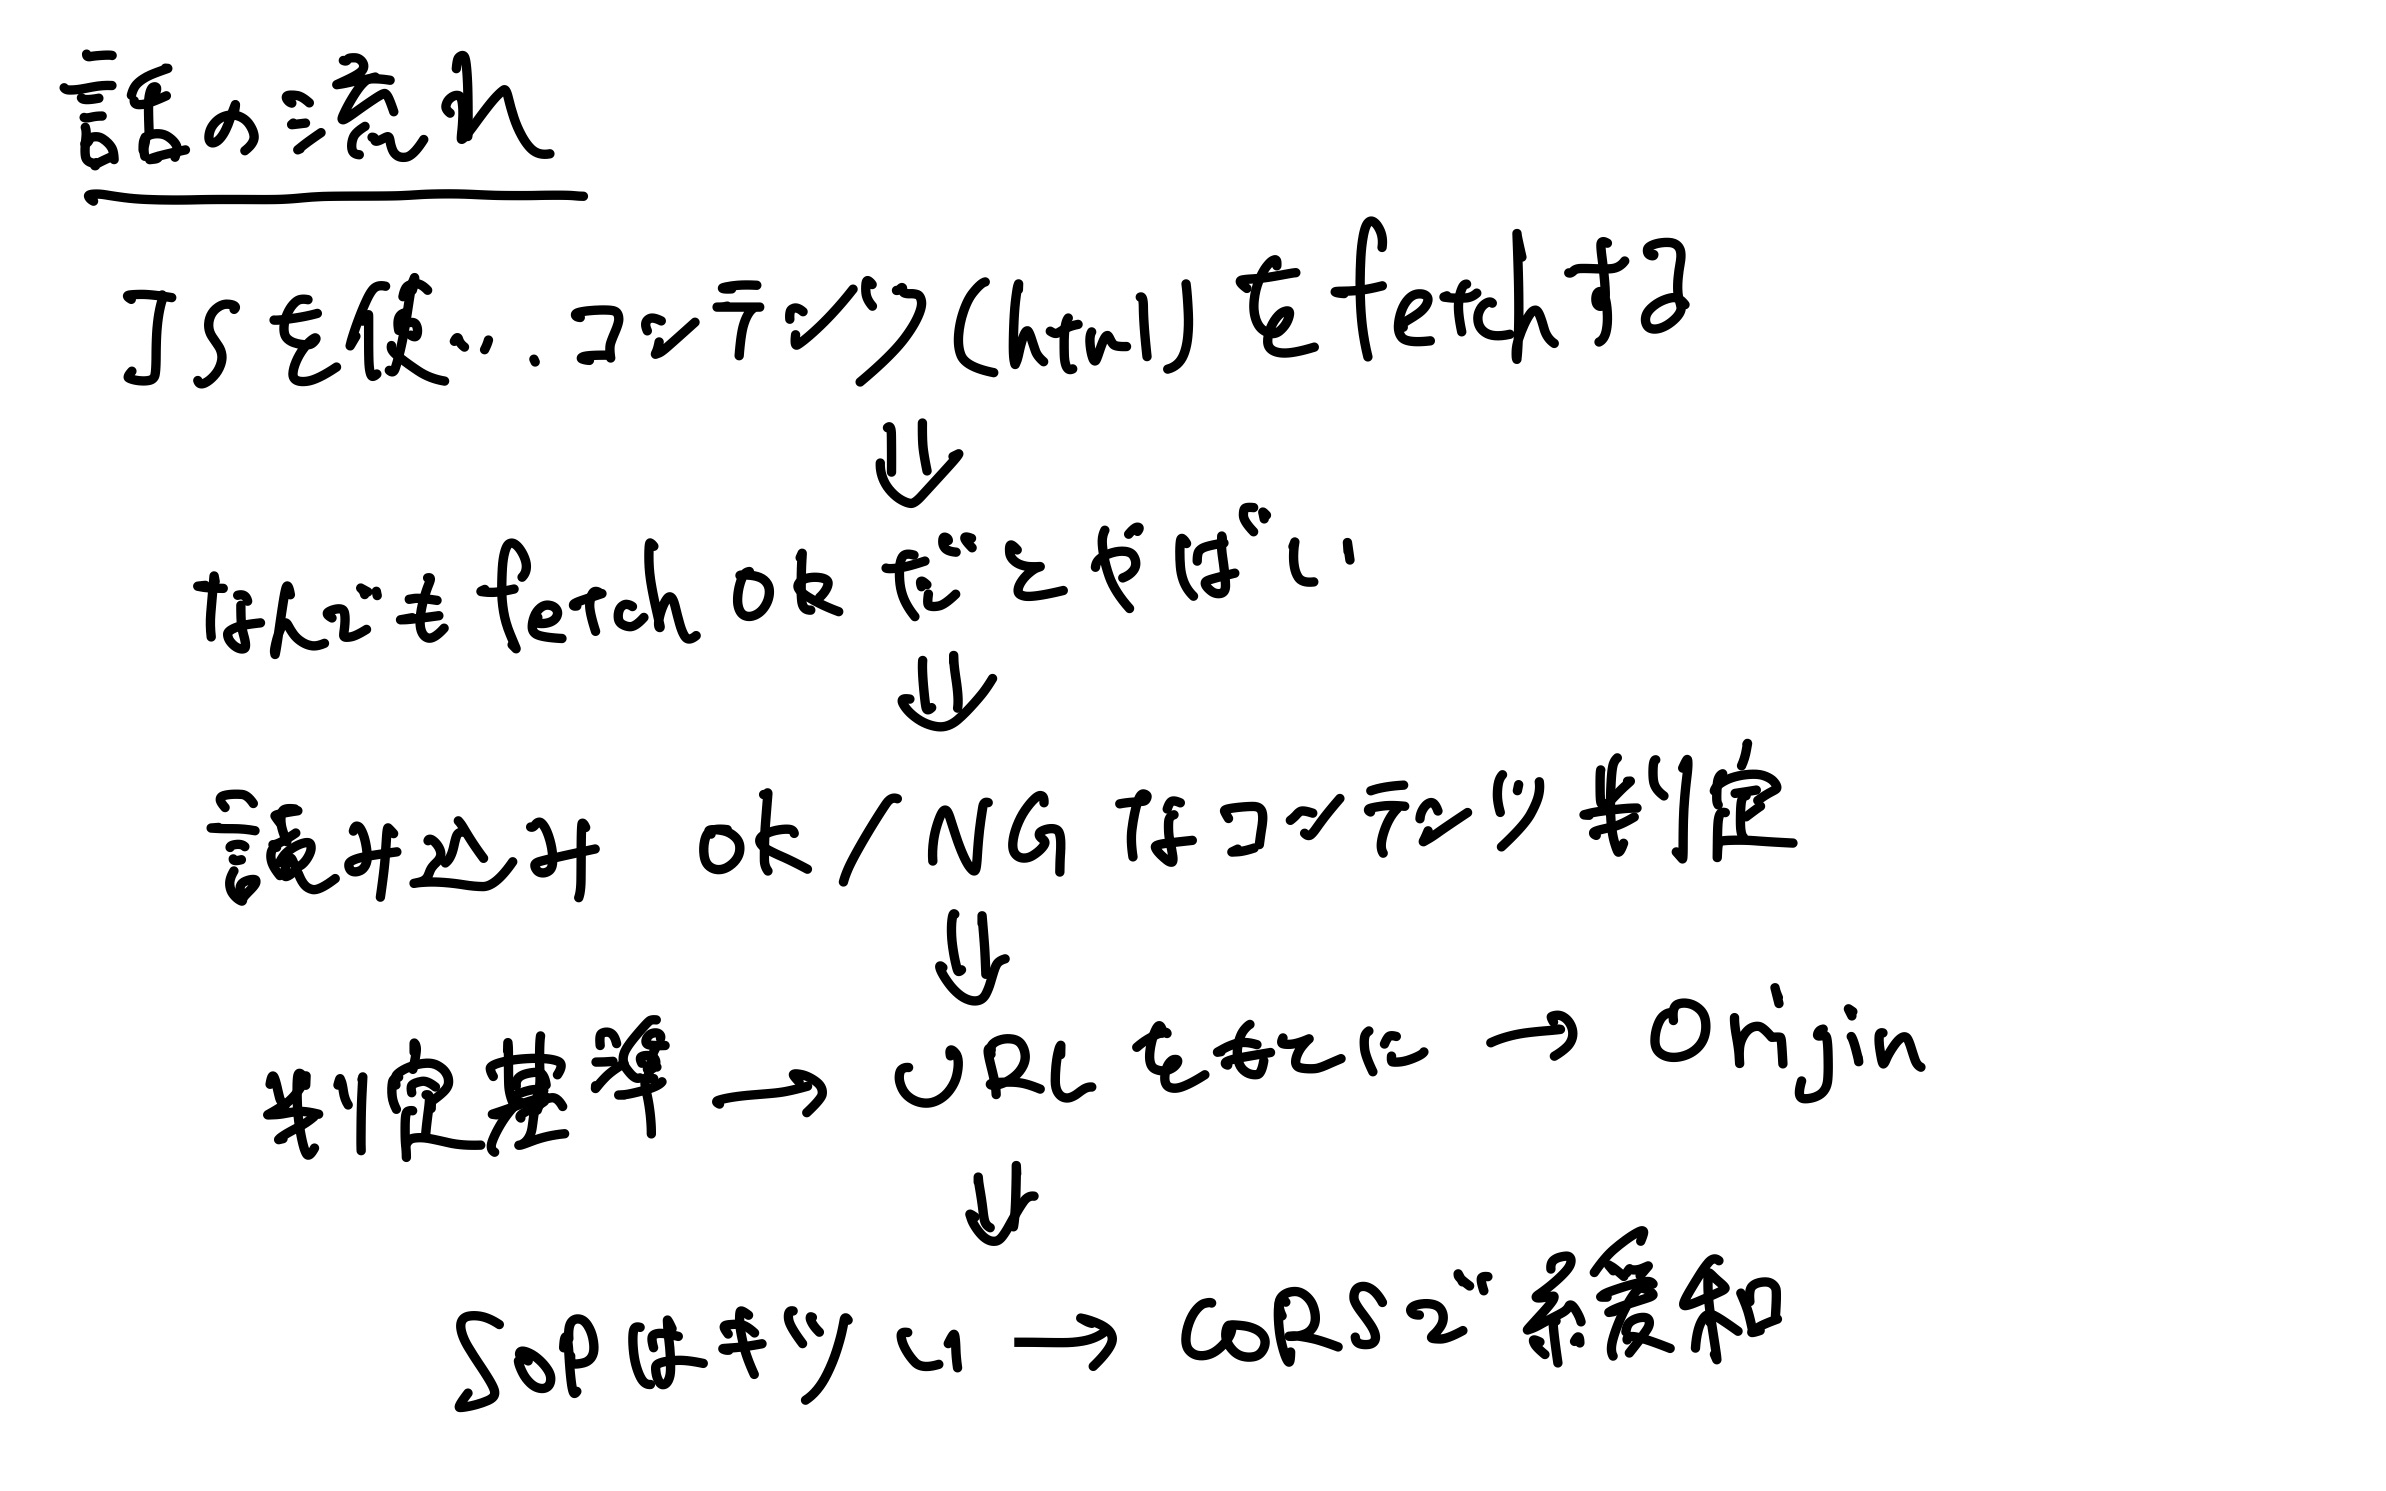 話の流れ
JSを使い、コンテンツ(html)をfetchする
⇓
なんでもfetch okだとやばい
⇓
読み込み ok/NGなコンテンツ判定
⇓
判定基準 → URLを見る → Origin
⇓
SOPはキツい → CORSで緩和